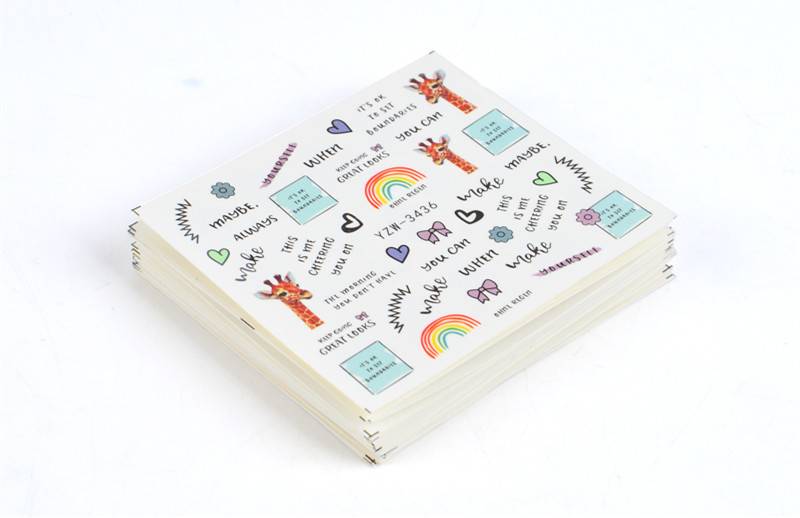 IT'S OK
TO SET
BOUNDARIES
YOU CAN
IT'S OK
TO SET
BOUNDARIES
WHEN
YOURSELF
KEEP GOING
GREAT LOOKS
OHNE REGEN
make
MAYBE.
MAYBE.
ALWAYS
IT'S OK
TO SET
BOUNDARIES
YZW-3436
THIS
IS ME
CHEERING
YOU ON
IT'S OK
TO SET
BOUNDARIES
make
THIS
IS ME
CHEERING
YOU ON
YOU CAN
WHEN
make
YOURSELF
THE MORNING
YOU DON'T HAVE
make
OHNE REGEN
KEEP GOING
GREAT LOOKS
IT'S OK
TO SET
BOUNDARIES